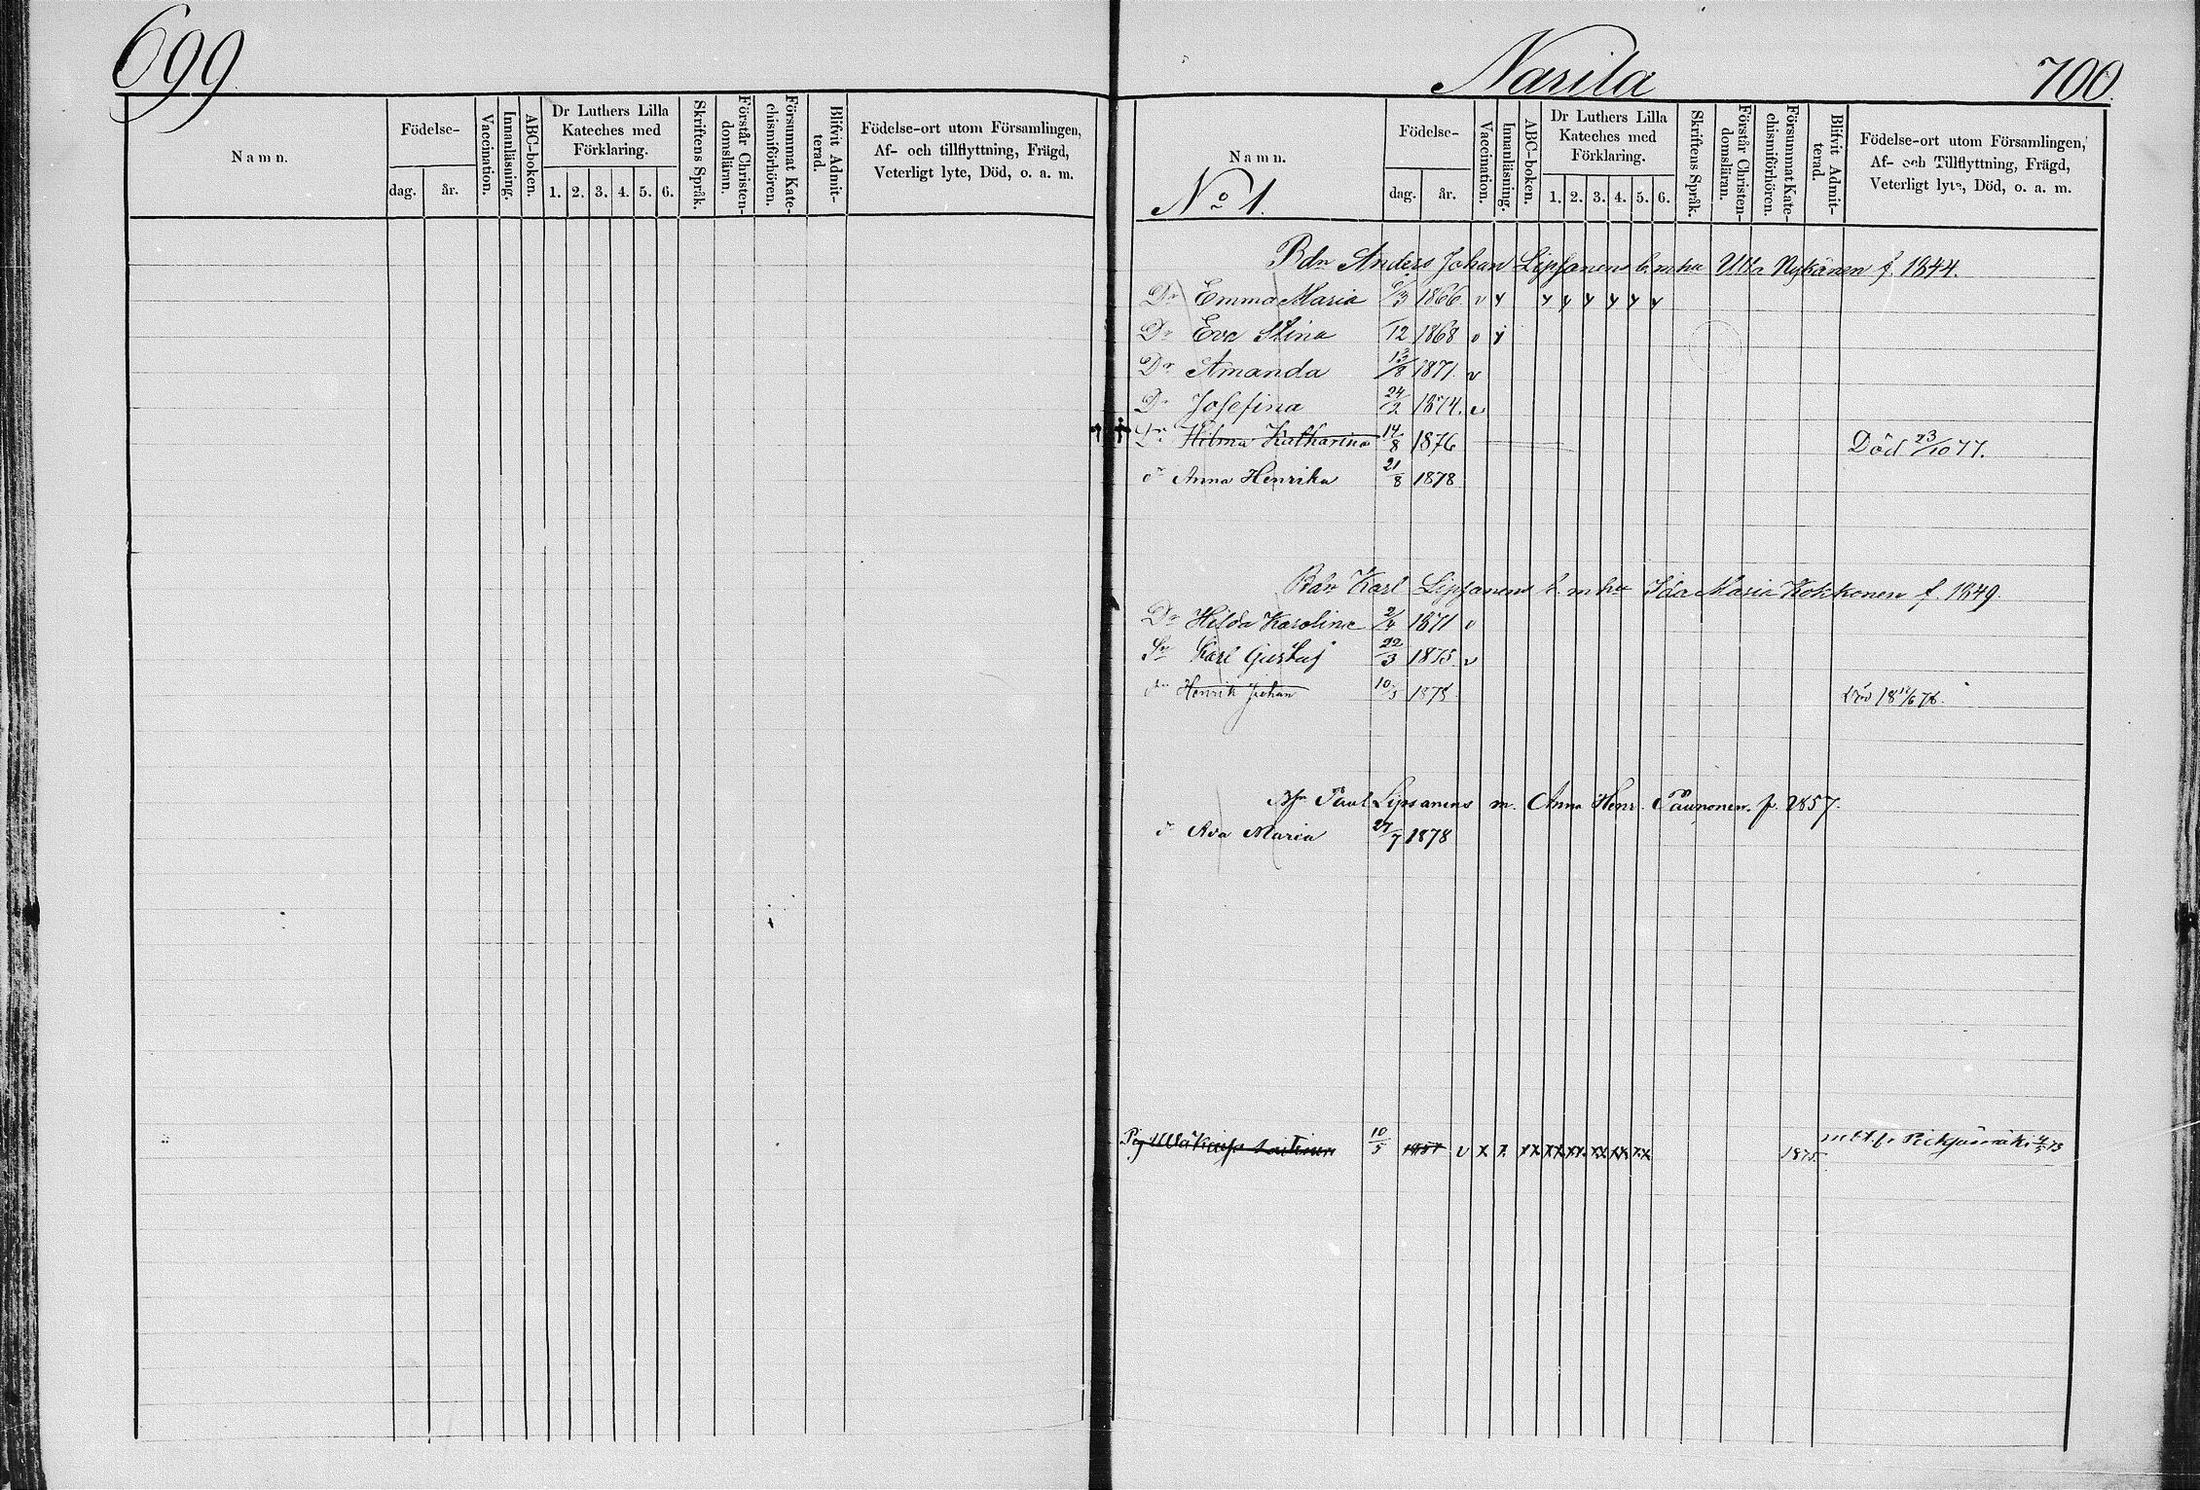 699
Namn.
Födelse-
dag.
år.
Vaccination.
Innanläsning.
ABC-boken.
Dr Luthers Lilla
Kateches med
Förklaring.
1. 2. 3. 4. 5. 6.
Skriftens Språk.
Förstår Christen-
domsläran.
Försummat Kate-
chismiförhören.
Blifvit Admit-
terad.
Födelse-ort utom Församlingen,
Af- och tillflyttning, Frägd,
Veterligt lyte, Död, o. a. m.
Narila
700.
Namn.
No 1.
Födelse-
dag.
år.
Vaccination.
Innanläsning.
ABC-boken.
Dr Luthers Lilla
Kateches med
Förklaring.
1. 2. 3. 4. 5. 6.
Skriftens Språk.
Förstår Christen-
domsläran.
Försummat Kate-
chismiförhören.
Blifvit Admit-
terad.
Födelse-ort utom Församlingen,
Af- och Tillflyttning, Frägd,
Veterligt lyte, Död, o. a. m.
Bdn Anders Johan Lipsanens b. m. hu Ulla Nykänen f. 1844.
Dr Emma Maria 1866. v y y y y y y y
Dr Eva Stina 12 1868 v y
Dr Amanda 13/8 1871. v
Dr Josefina 24/2 1874. v
Dr Hilma Katharina 14/8 1876 Död 23/10 77.
dr Anna Henrika 21/8 1878
Bdn Karl Lipsanens b. m hu Ida Maria Kokkonen f. 1849.
Dr Hilda Karolina 2/4 1871 v
Sn Karl Gustaf 22/3 1875. v
Henrik Johan 10/3 1878.
Paul Lipsanens m. Anna Henr. Paunonen. f. 1857.
dr Eva Maria 27/7 1878
Pig Ulla Kajsa Laitinen 10/5 1857 v x x xx xx xx xx xx xx 1875.